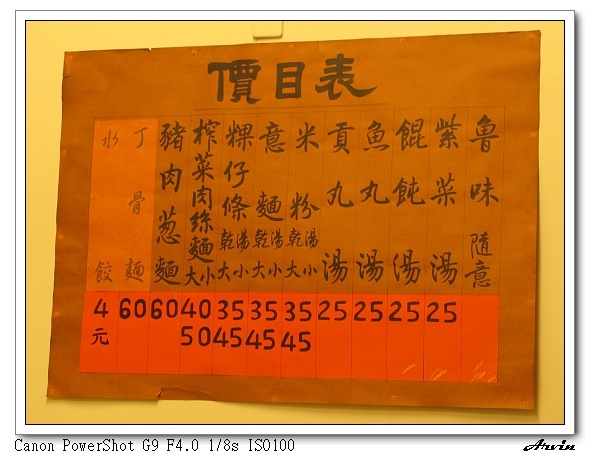 價目表
魯味 隨意
紫菜湯 25
餛飩湯 25
魚丸湯 25
貢丸湯 25
米粉 乾湯 大小 35 45
意麵 乾湯 大小 35 45
粿仔條 乾湯 大小 35 45
榨菜肉絲麵 大小 40 50
豬肉蔥麵 60
丁骨麵 60
水餃 4元
Canon PowerShot G9 F4.0 1/8s ISO100
Arvin